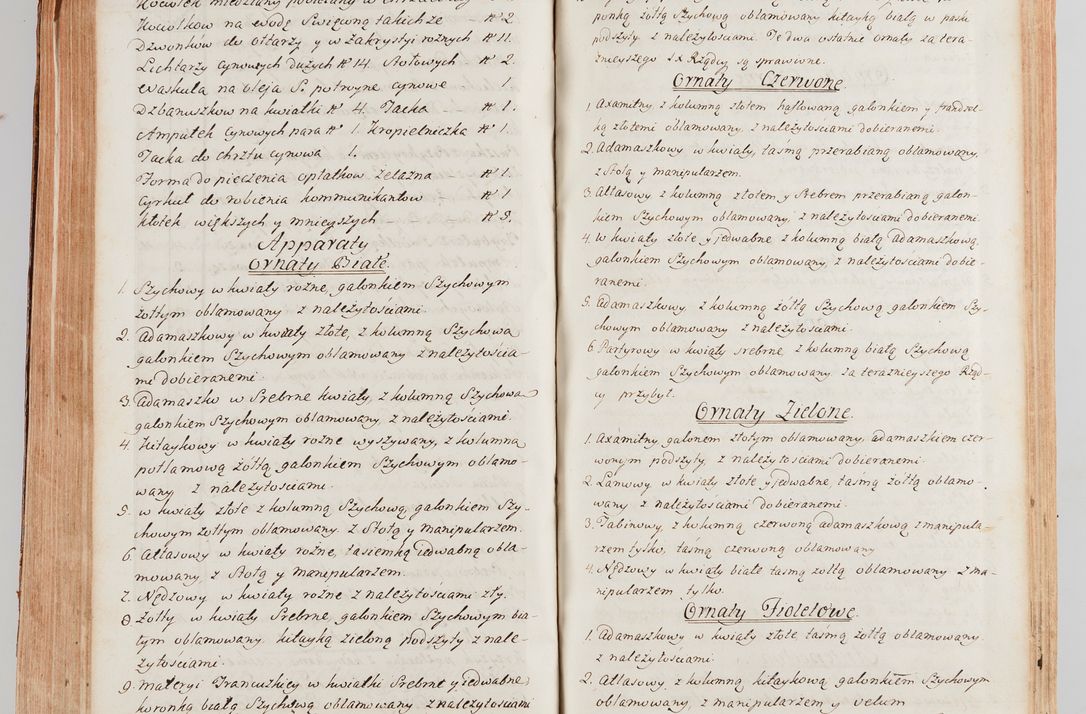 Kociołek miedziany pobielany w Zakrystyi
Kociołkow na wodę Swięconą takichze - N 2
Dzwonkow do ołtarzy y w Zakrystyi roznych N 11.
Lichtarzy cynowych duzych N 14. Stołowych - N 2
Waskula na oleja S. potroyne cynowe 1
Dzbanuszkow na kwiatki N 4. Tacka N 1.
Ampułek cynowych para N 1. Kropielniczka N 1.
Tacka do chrztu cynowa 1.
Forma do pieczenia opłatkow żelazna N 1.
Cyrkuł do robienia kommunikantow N 1
kłotek większych y mnieyszych N 5.
Apparaty
Ornaty Białe.
1. Szychowy w kwiaty rozne, galonkiem Szychowym
żołtym oblamowany z należytościami.
2. Adamaszkowy w kwiaty złote, z kolumną Szychową
galonkiem Szychowym oblamowany z należytościa-
mi dobieranemi.
3. Adamaszko w Srebrne kwiaty, z kolumną Szychową
galonkiem Szychowym oblamowany, z należytościami.
4. Kitaykowy w kwiaty rozne wyszywany, z kolumną
potłamową żółtą, galonkiem Szychowym oblamo-
wany z należytościami.
5. w kwiaty złote z kolumną Szychową, galonkiem Szy-
chowym żołtym oblamowany. z Stołą y manipularzem.
6. Atłasowy w kwiaty rozne, tasiemką jedwabną obla-
mowany, z Stołą y manipularzem.
7. Nędzowy w kwiaty rozne z należytosciami zły.
8. Zołty w kwiaty Srebrne, galonkiem Szychowym bia-
łym oblamowany kitayką zieloną podszyty z nale-
żytościami.
9. materyi Francuzkiey w kwiatki Srebrne y jedwabne,
koronką białą Szychową oblamowany, z należytościami
ponką żółtą Szychową oblamowany kitayką białą w paski
podszyty z nalezytościami. Te dwa ostatnie ornaty za tera-
znieyszego JX Rządcy są sprawione.
Ornaty Czerwone.
1. Axamitny, z kolumną złotem haftowaną, galonkiem y frandzel-
ką złotemi oblamowany. z należytościami dobieranemi.
2. Adamaszkowy w kwiaty, taśmą przerabianą oblamowany,
z Stołą y manipularzem.
3. Atłasowy z kolumną złotem y Srebrem przerabianą galon-
kiem Szychowym oblamowany, z należytościami dobieranemi
4. w kwiaty złote y jedwabne, z kolumną białą Adamaszkową,
galonkiem Szychowym oblamowany, z należytosciami dobie-
ranemi.
5. Adamaszkowy z kolumną żółtą Szychową galonkiem Szy-
chowym oblamowany z należytościami.
6. Partyrowy w kwiaty srebrne, z kolumną białą Szychową
galonkiem Szychowym oblamowany. za teraznieyszego Rząd-
cy przybył.
Ornaty Zielone.
1. Axamitny, galonem złotym oblamowany, adamaszkiem czer-
wonym podszyty, z należytosciami dobieranemi.
2. Lamowy w kwiaty złote y jedwabne, taśmą żółtą oblamo-
wany z należytościami dobieranemi.
3. Tabinowy, z kolumną czerwoną adamaszkową z manipula-
rzem tylko, taśmą czerwoną oblamowany
4. Nędzowy w kwiaty białe taśmą żołtą oblamowany z ma-
nipularzem tylko.
Ornaty Fioletowe.
1. Adamaszkowy w kwiaty złote taśmą żółtą oblamowany.
z należytościami.
2. Atłasowy, z kolumną kitaykową galonkiem Szychowym
oblamowany, z manipularzem y velum